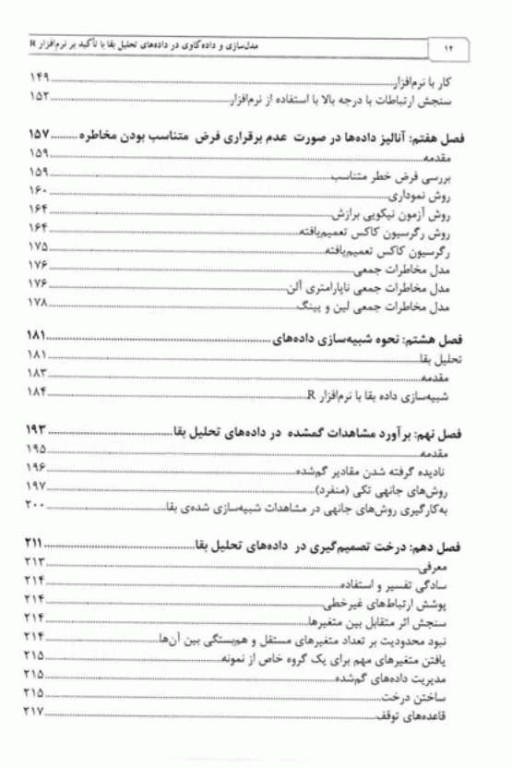 ۱۲ مدل‌سازی و داده‌کاوی در داده‌های تحلیل بقا با تأکید بر نرم‌افزار R
کار با نرم‌افزار ۱۴۹
سنجش ارتباطات با درجه بالا با استفاده از نرم‌افزار ۱۵۲
فصل هفتم: آنالیز داده‌ها در صورت عدم برقراری فرض متناسب بودن مخاطره ۱۵۷
مقدمه ۱۵۹
بررسی فرض خطر متناسب ۱۵۹
روش نموداری ۱۶۰
روش آزمون نیکویی برازش ۱۶۴
روش رگرسیون کاکس تعمیم‌یافته ۱۶۴
رگرسیون کاکس تعمیم‌یافته ۱۷۵
مدل مخاطرات جمعی ۱۷۶
مدل مخاطرات جمعی ناپارامتری آلن ۱۷۶
مدل مخاطرات جمعی لین و یینگ ۱۷۸
فصل هشتم: نحوه شبیه‌سازی داده‌های ۱۸۱
تحلیل بقا ۱۸۱
مقدمه ۱۸۳
شبیه‌سازی داده بقا با نرم‌افزار R ۱۸۴
فصل نهم: برآورد مشاهدات گمشده در داده‌های تحلیل بقا ۱۹۳
مقدمه ۱۹۵
نادیده گرفته شدن مقادیر گم‌شده ۱۹۶
روش‌های جانهی تکی (منفرد) ۱۹۷
به‌کارگیری روش‌های جانهی در مشاهدات شبیه‌سازی شده‌ی بقا ۲۰۰
فصل دهم: درخت تصمیم‌گیری در داده‌های تحلیل بقا ۲۱۱
معرفی ۲۱۳
سادگی تفسیر و استفاده ۲۱۴
پوشش ارتباط‌های غیرخطی ۲۱۴
سنجش اثر متقابل بین متغیرها ۲۱۴
نبود محدودیت بر تعداد متغیرهای مستقل و هم‌بستگی بین آن‌ها ۲۱۴
یافتن متغیرهای مهم برای یک گروه خاص از نمونه ۲۱۵
مدیریت داده‌های گم‌شده ۲۱۵
ساختن درخت ۲۱۵
قاعده‌های توقف ۲۱۷